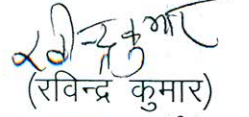 रविन्द्र कुमार
(रविन्द्र कुमार)